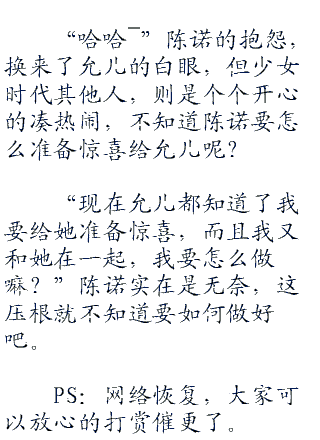 “哈哈~”陈诺的抱怨，
换来了允儿的白眼，但少女
时代其他人，则是个个开心
的凑热闹，不知道陈诺要怎
么准备惊喜给允儿呢？
“现在允儿都知道了我
要给她准备惊喜，而且我又
和她在一起，我要怎么做
嘛？”陈诺实在是无奈，这
压根就不知道要如何做好
吧。
PS：网络恢复，大家可
以放心的打赏催更了。